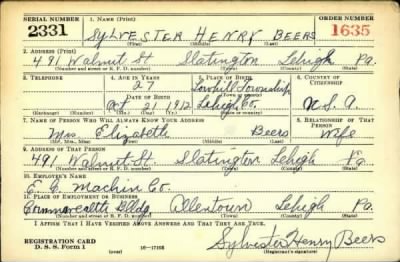 SERIAL NUMBER 1. NAME (Print) ORDER NUMBER
2331 SYLVESTER HENRY BEERS 1635
(First) (Middle) (Last)
2. ADDRESS (Print)
491 Walnut St. Slatington Lehigh Pa.
(Number and street or R. F. D. number) (Town) (County) (State)
3. TELEPHONE 4. AGE IN YEARS 5. PLACE OF BIRTH 6. COUNTRY OF CITIZENSHIP
27 Lowhill Township
DATE OF BIRTH (Town or county)
Oct 21 1912 Lehigh Co. U.S.A.
(Exchange) (Number) (Mo.) (Day) (Yr.) (State or country)
7. NAME OF PERSON WHO WILL ALWAYS KNOW YOUR ADDRESS 8. RELATIONSHIP OF THAT PERSON
Mrs. Elizabeth Beers Wife
(Mr., Mrs., Miss) (First) (Middle) (Last)
9. ADDRESS OF THAT PERSON
491 Walnut St. Slatington Lehigh Pa
(Number and street or R. F. D. number) (Town) (County) (State)
10. EMPLOYER'S NAME
E. E. Machin Co.
11. PLACE OF EMPLOYMENT OR BUSINESS
Commonwealth Bldg Allentown Lehigh Pa.
(Number and street or R. F. D. number) (Town) (County) (State)
I AFFIRM THAT I HAVE VERIFIED ABOVE ANSWERS AND THAT THEY ARE TRUE.
REGISTRATION CARD
D. S. S. Form 1 (over) 16-17105 Sylvester Henry Beers
(Registrant's signature)